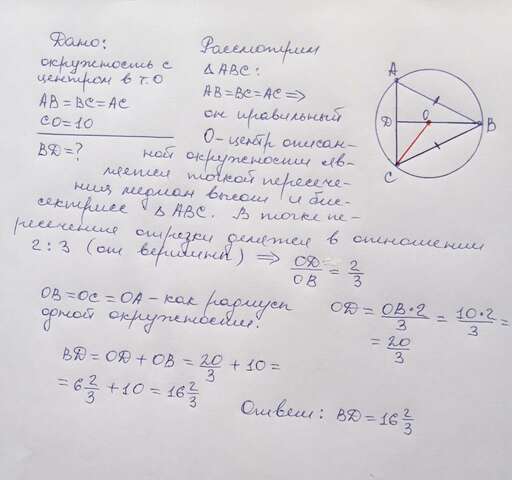 Дано:
окружность с
центром в т. О
AB = BC = AC
CO = 10
BD = ?
Рассмотрим
△ABC:
AB = BC = AC ⇒
он правильный
О - центр описан-
ной окружности яв-
ляется точкой пересече-
ния медиан высот и бис-
сектрисс △ABC. В точке пе-
ресечения отрезки делятся в отношении
2 : 3 (от вершины) ⇒ OD/OB = 2/3
A
D
O
B
C
OB = OC = OA - как радиусы
одной окружности.
OD = OB • 2/3 = 10 • 2/3 =
= 20/3
BD = OD + OB = 20/3 + 10 =
= 6 2/3 + 10 = 16 2/3
Ответ: BD = 16 2/3